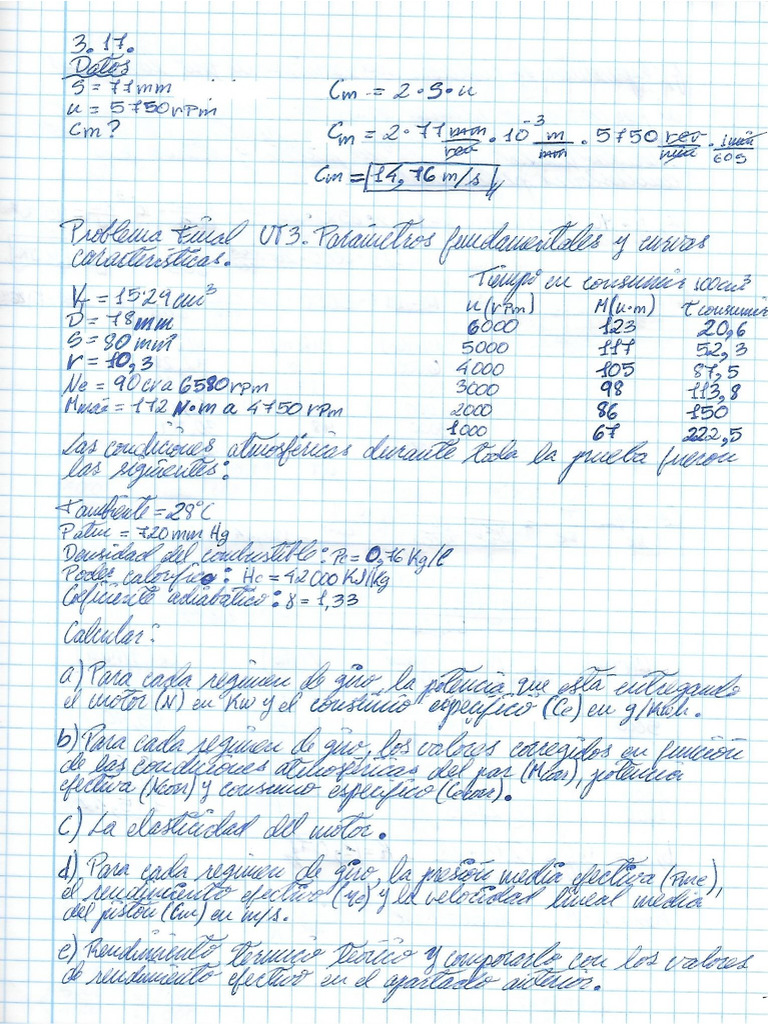 3.17.
Datos
S = 77mm
n = 5750rpm
Cm?
Cm = 2·S·n
Cm = 2·77 mm/rev · 10⁻³ m/mm · 5750 rev/min · 1min/60s
Cm = 14,76 m/s
Problema Final UT3. Parámetros fundamentales y curvas
características.
Vt = 1529cm³
D = 78mm
S = 80mm
r = 10,3
Ne = 90cv a 6580rpm
Mmáx = 112 N·m a 4750rpm
Tiempo en consumir 100cm³
n(rpm) M(N·m) t consumir
6000 123 20,6
5000 117 52,3
4000 105 87,5
3000 98 113,8
2000 86 150
1000 67 222,5
Las condiciones atmosféricas durante toda la prueba fueron
las siguientes:
Tambiente = 28°C
Patm = 720mmHg
Densidad del combustible: ρc = 0,76 Kg/l
Poder calorífico: Hc = 42000 KJ/kg
Coeficiente adiabático: γ = 1,33
Calcular:
a) Para cada régimen de giro, la potencia que está entregando
el motor (N) en Kw y el consumo específico (Ce) en g/Kwh.
b) Para cada régimen de giro, los valores corregidos en función
de las condiciones atmosféricas del par (Mcor), potencia
efectiva (Ncor) y consumo específico (Cecor).
c) La elasticidad del motor.
d) Para cada régimen de giro, la presión media efectiva (Pme),
el rendimiento efectivo (ηe) y la velocidad lineal media
del pistón (Cm) en m/s.
e) Rendimiento térmico teórico y compararlo con los valores
de rendimiento efectivo en el apartado anterior.